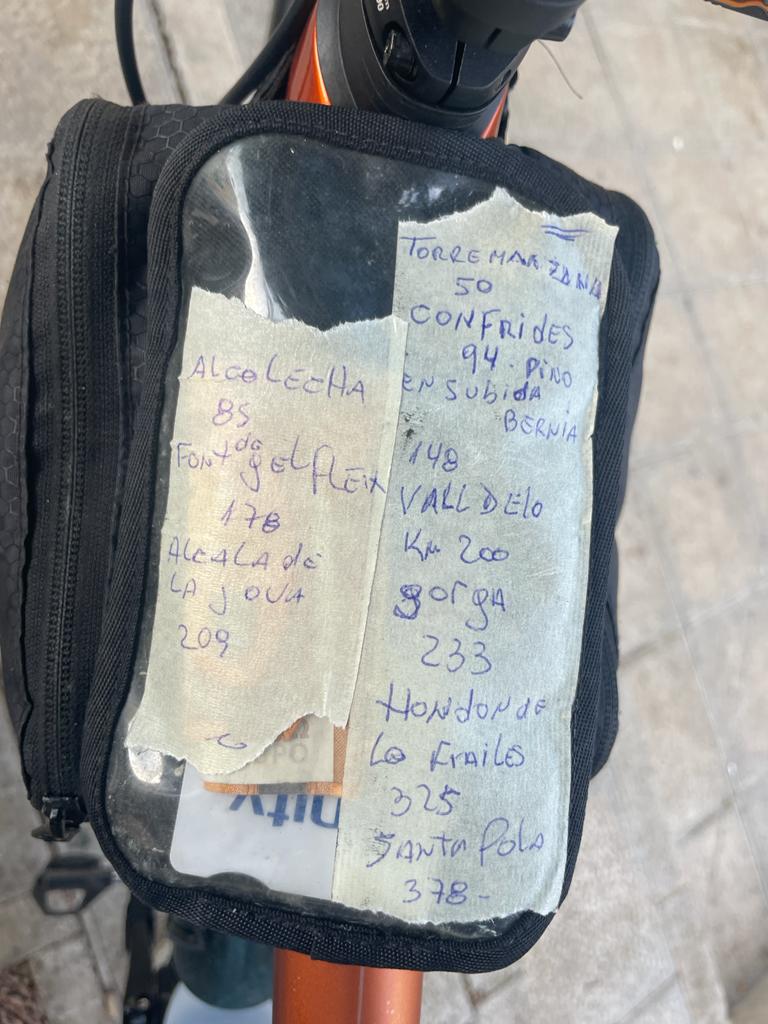 ALCOLECHA
85
FONT de gEL FLEIX
178
ALCALA de
LA jOVA
209
TORREMANZANA
50
CONFRIDES
94 - PINO
EN SUBIDA
BERNIA
148
VALL DElO
Km 200
gorgA
233
HONDON de
Lo FrAilES
325
SANTA POLA
378-
nity